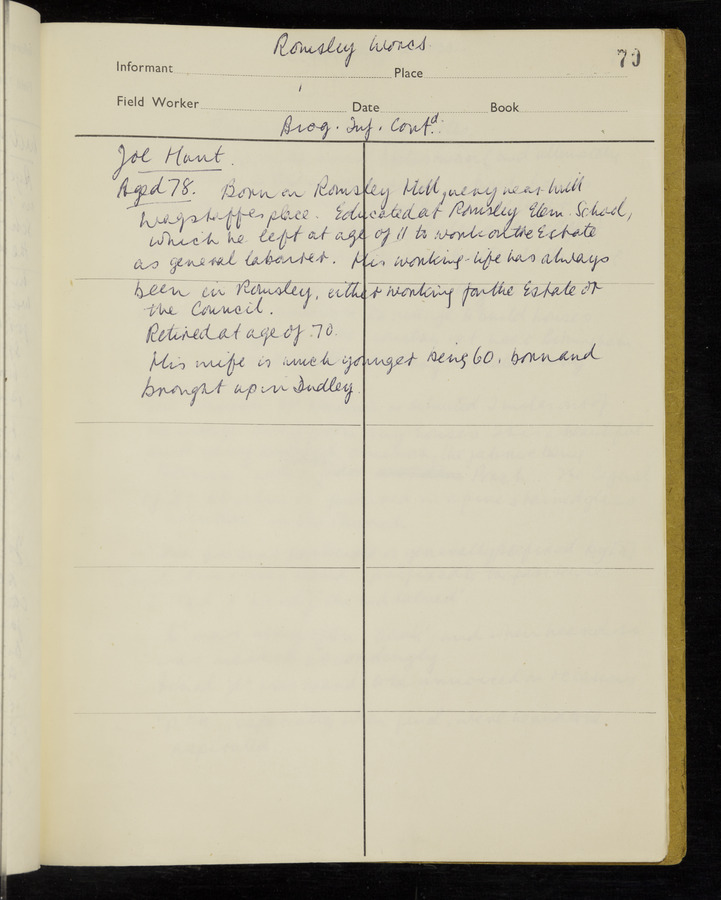 Romsley Worcs
79
Informant Place
Field Worker Date Book
Biog. Inf. Contd.
Joe Hunt.
Aged 78. Born on Romsley Hill, very near Will
Wagstaffes place. Educated at Romsley Elem. School,
which he left at age of 11 to work on the Estate
as general labourer. His working-life has always
been in Romsley, either working for the Estate or
the Council.
Retired at age of 70.
His wife is much younger being 60, born and
brought up in Dudley.